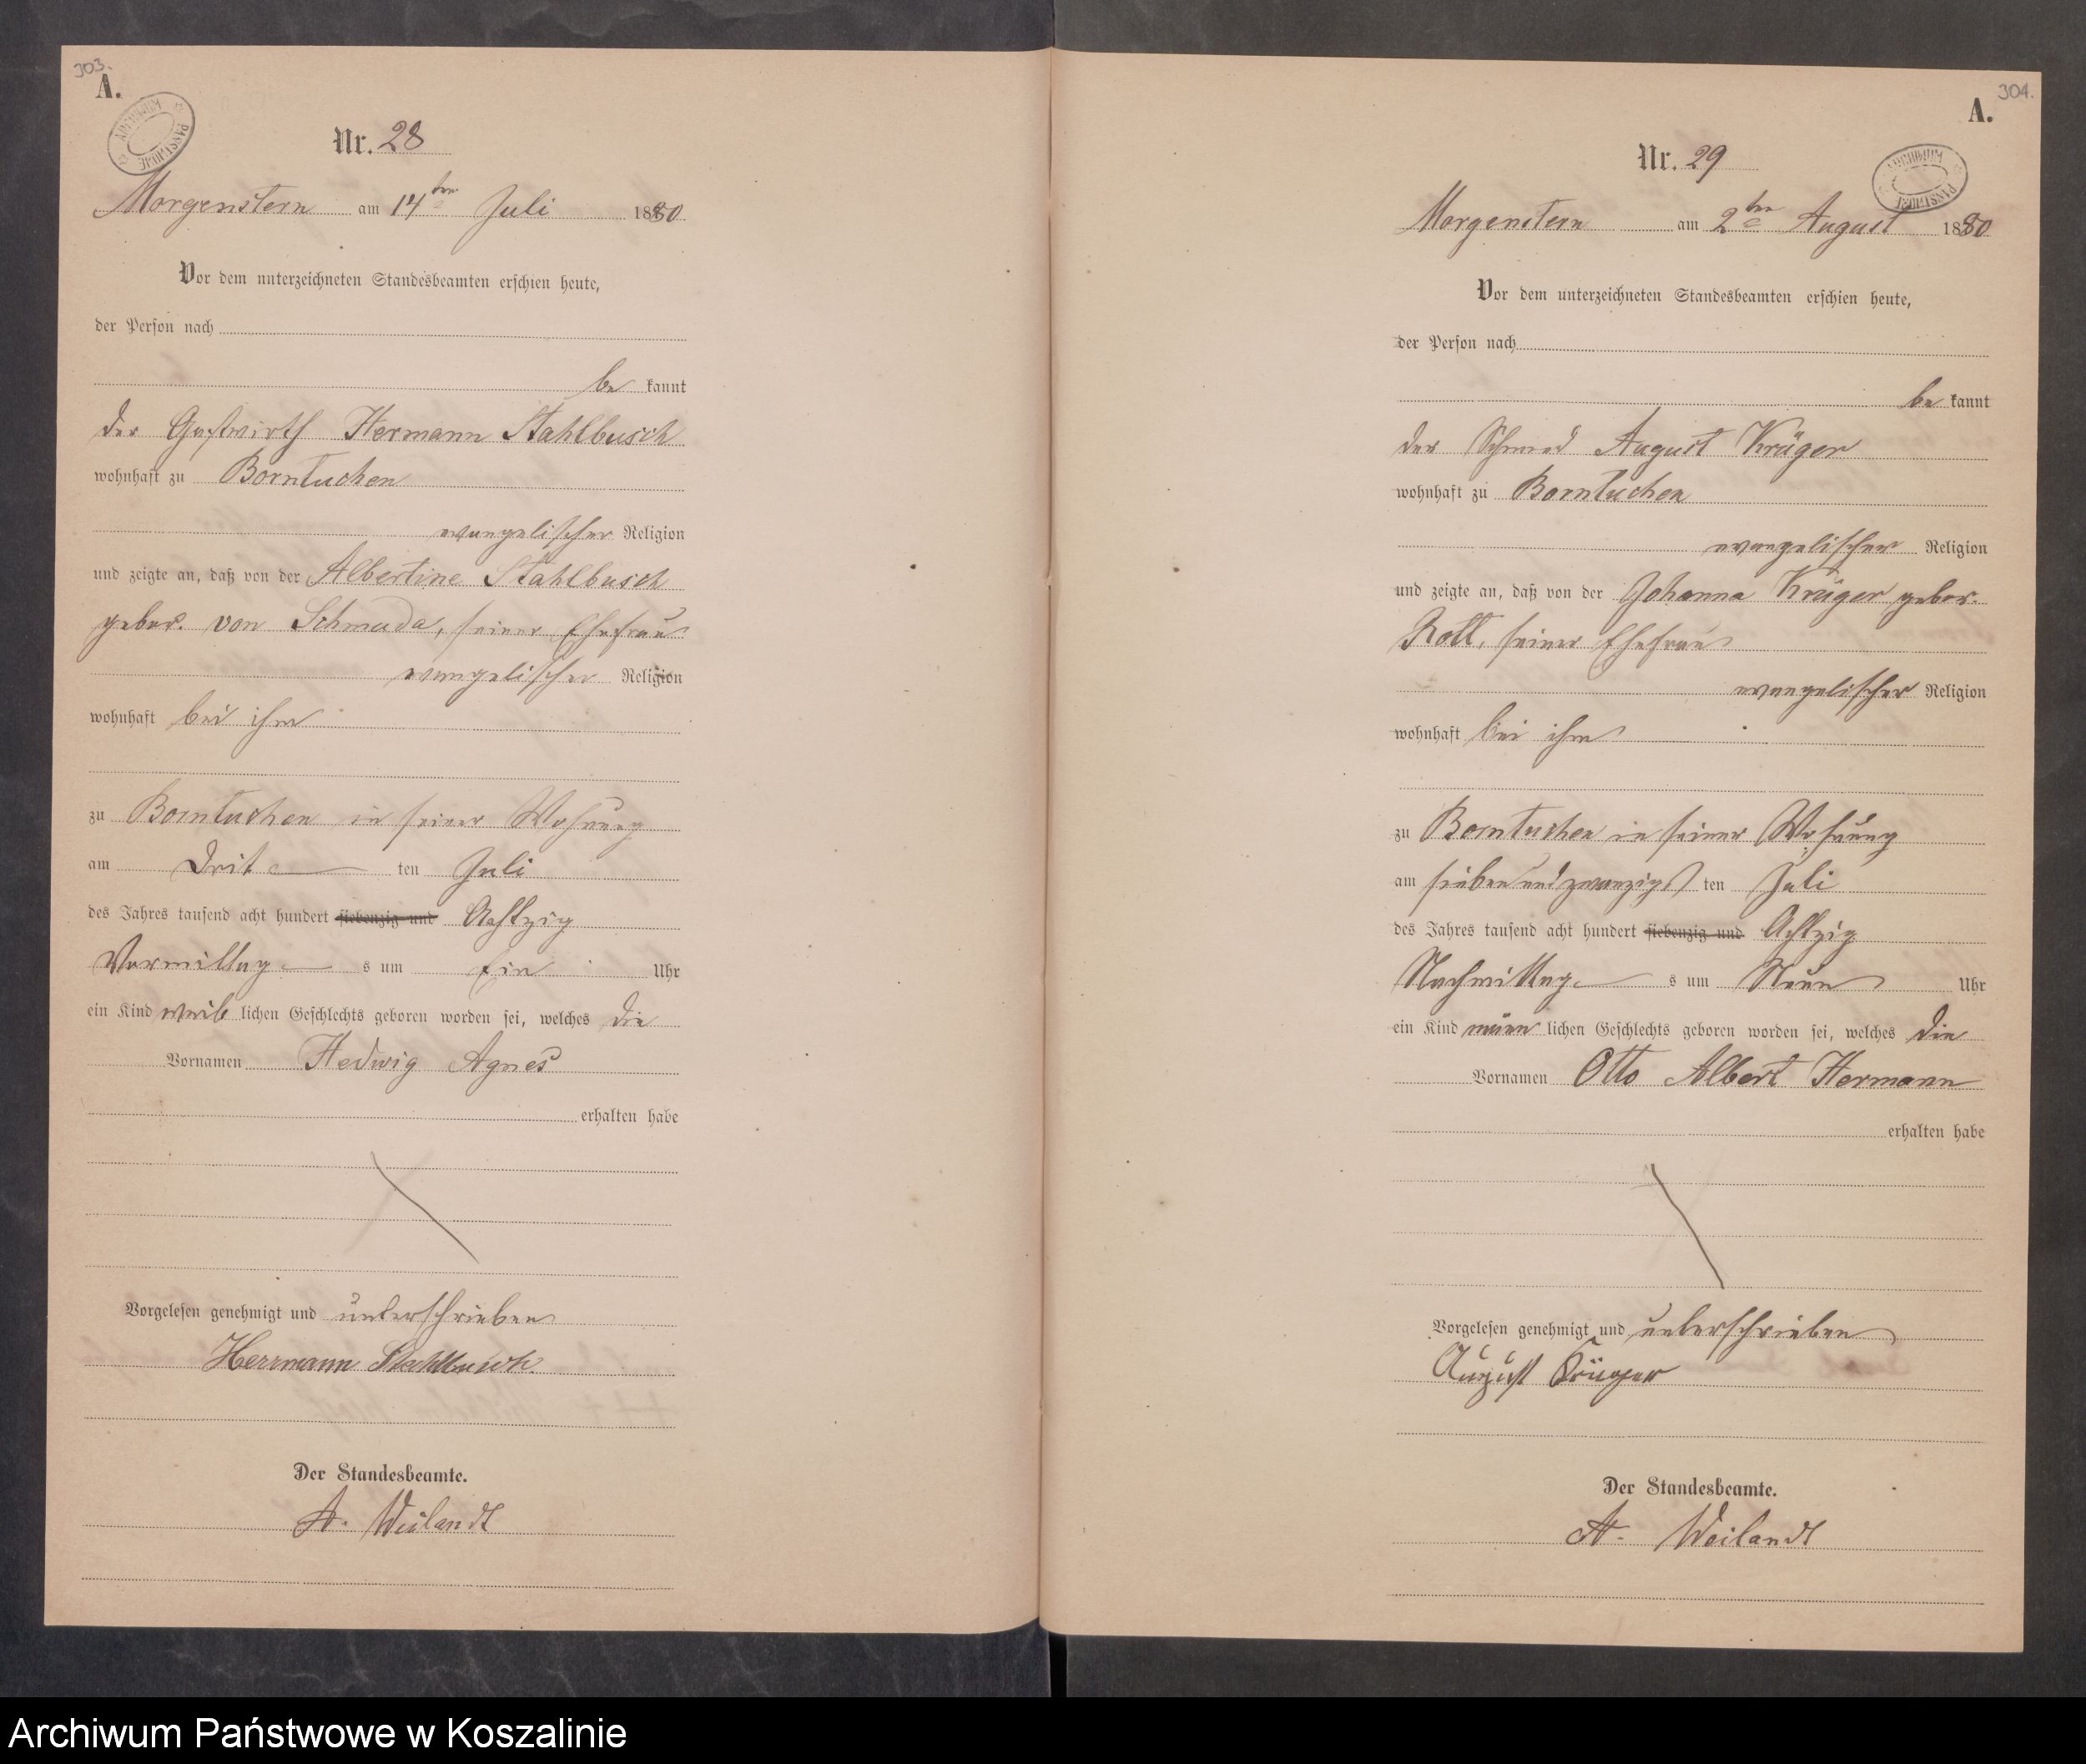 303.
A.
ARCHIWUM PAŃSTWOWE
Nr. 28
Morgenstern am 14ten Juli 1880
Vor dem unterzeichneten Standesbeamten erschien heute,
der Person nach
be kannt
der Gastwirth Hermann Stahlbusch
wohnhaft zu Borntuchen
evangelischer Religion
und zeigte an, daß von der Albertine Stahlbusch
gebor. von Schmuda, seiner Ehefrau
evangelischer Religion
wohnhaft bei ihm
zu Borntuchen in seiner Wohnung
am Drit ten Juli
des Jahres tausend acht hundert siebenzig und Achtzig
Vormittag s um Ein Uhr
ein Kind weib lichen Geschlechts geboren worden sei, welches die
Vornamen Hedwig Agnes
erhalten habe
Vorgelesen genehmigt und unterschrieben
Herrmann Stahlbusch.
Der Standesbeamte.
A. Weilandt
304.
A.
ARCHIWUM PAŃSTWOWE
Nr. 29
Morgenstern am 2ten August 1880
Vor dem unterzeichneten Standesbeamten erschien heute,
der Person nach
be kannt
der Schmied August Krüger
wohnhaft zu Borntuchen
evangelischer Religion
und zeigte an, daß von der Johanna Krüger gebor.
Roll, seiner Ehefrau
evangelischer Religion
wohnhaft bei ihm
zu Borntuchen in seiner Wohnung
am siebenundzwanzigs ten Juli
des Jahres tausend acht hundert siebenzig und Achtzig
Nachmittag s um Neun Uhr
ein Kind männ lichen Geschlechts geboren worden sei, welches die
Vornamen Otto Albert Hermann
erhalten habe
Vorgelesen genehmigt und unterschrieben
August Krüger
Der Standesbeamte.
A. Weilandt
Archiwum Państwowe w Koszalinie